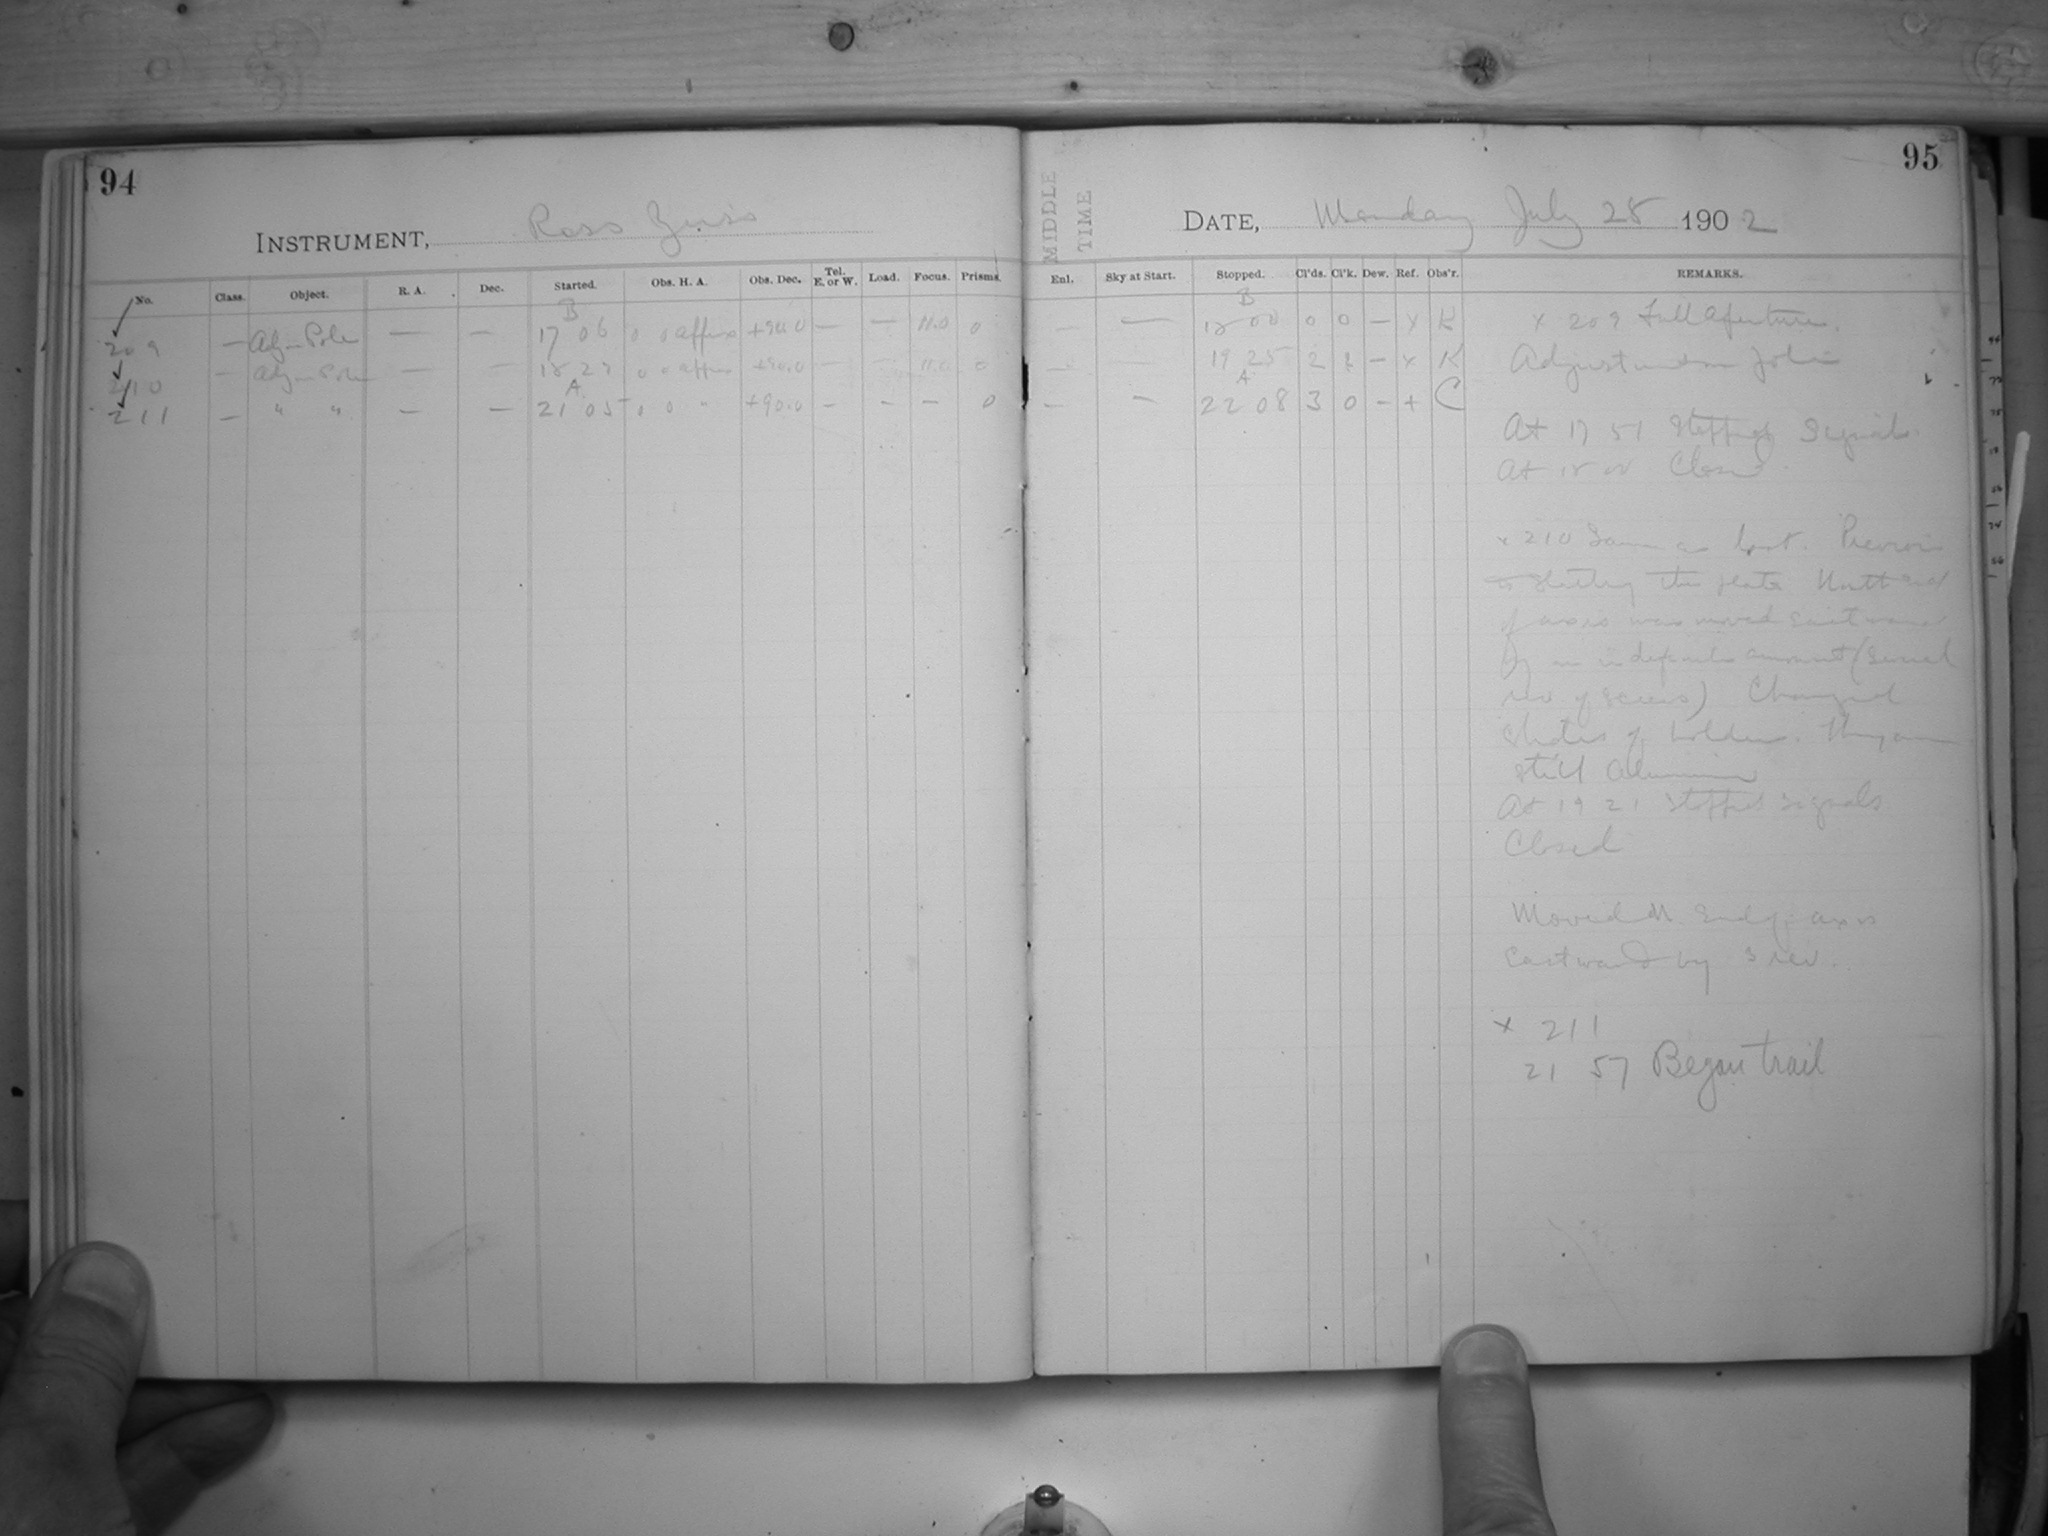 94
INSTRUMENT, Ross Zeiss
No. Class. Object. R. A. Dec. Started. Obs. H. A. Obs. Dec. Tel. E. or W. Load. Focus. Prisms.
B
209 — Adj. Pole — — 17 06 0 0 approx +90.0 — — 11.0 0
210 — Adj. Pole — — 18 27 0 0 approx +90.0 — — 11.0 0
A
211 — " " — — 21 05 0 0 " +90.0 — — — 0
MIDDLE
TIME
95
DATE, Monday July 28 1902
Enl. Sky at Start. Stopped. Cl'ds. Cl'k. Dew. Ref. Obs'r. REMARKS.
B
— — 18 00 0 0 — x K
— — 19 25 2 — x K
A
— — 22 08 3 0 — + C
x 209 Full aperture.
Adjustment on
At 17 51 Stopped Signals.
At 18 00 Closed
x 210 Same as last. Previous
to starting this plate North end
of axis was moved eastward
by an indefinite amount (several
rev of screw) Changed
slides of holders. They are
still
At 19 21 stopped signals
Closed
Moved N. end of axis
Eastward by 3 rev.
x 211
21 57 Began trail